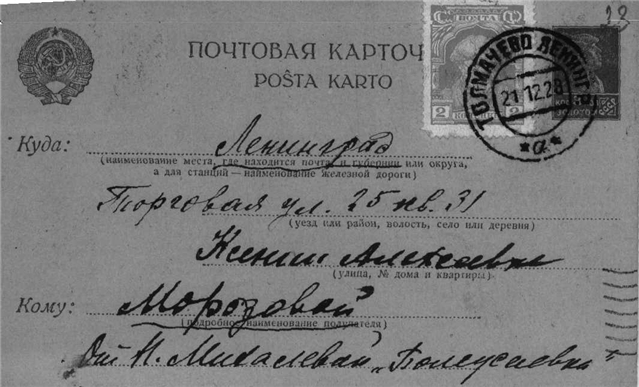 23
ПОЧТОВАЯ КАРТОЧ
POŜTA KARTO
ПОЧТА
2 КОПЕЙКИ 2
ТОЛМАЧЕВО ЛЕНИНГР
21.12.28
*а*
ЗОЛОТОМ
Куда: Ленинград
(наименование места, где находится почта, и губернии или округа,
а для станций—наименование железной дороги)
Торговая ул. 25 кв. 31
(уезд или район, волость, село или деревня)
Ксении Алексеевне
(улица, № дома и квартиры)
Кому: Морозовой
(подробное наименование получателя)
От Н. Михалевой